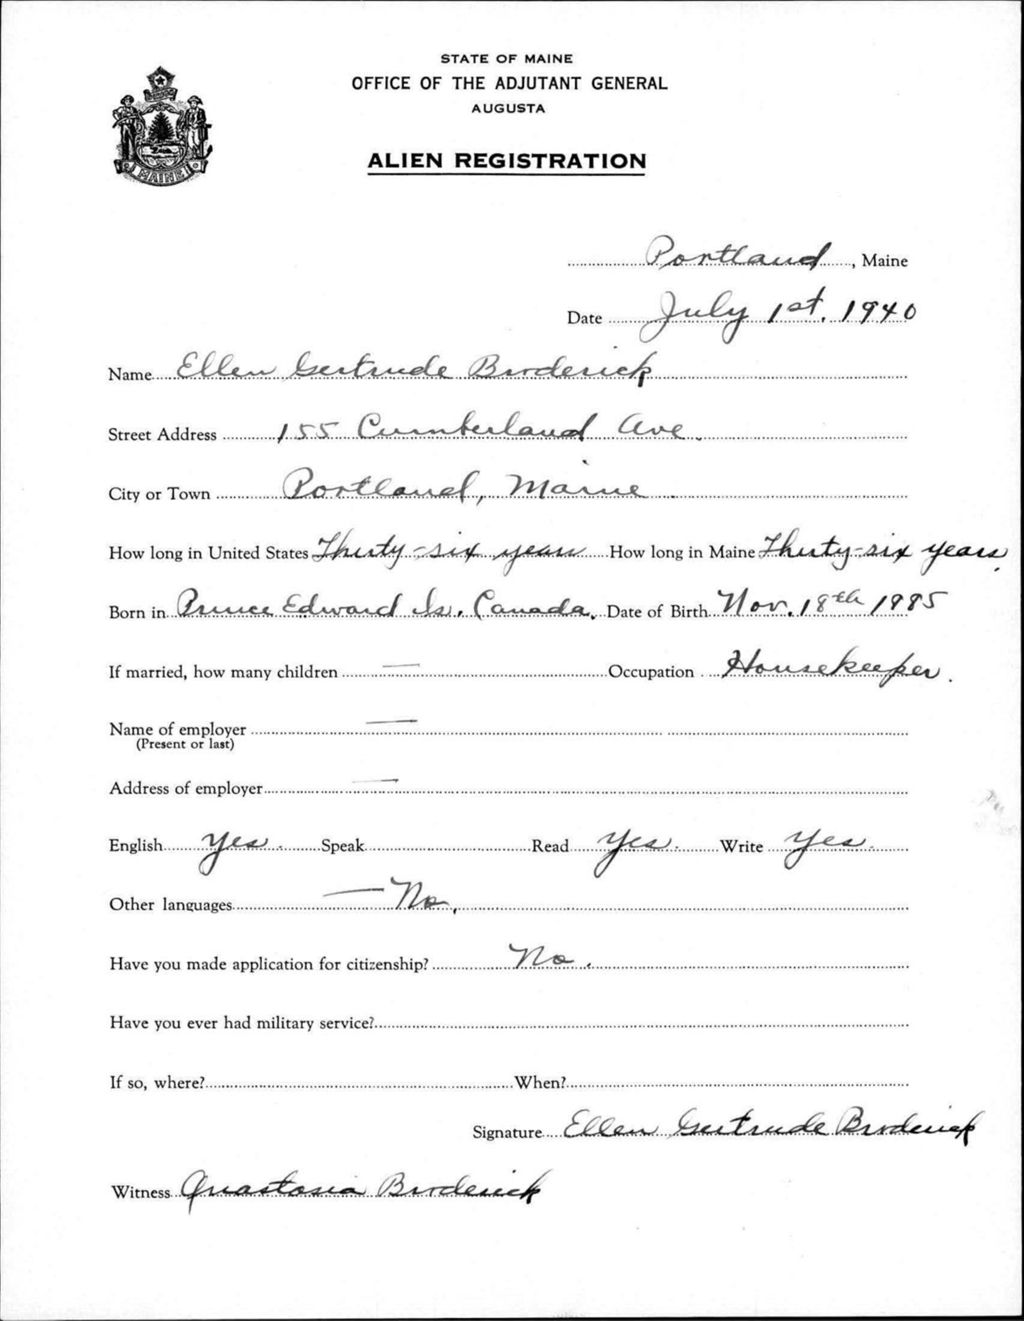 STATE OF MAINE
OFFICE OF THE ADJUTANT GENERAL
AUGUSTA
ALIEN REGISTRATION
MAINE
Portland, Maine
Date July 1st. 1940
Name Ellen Gertrude Broderick
Street Address 155 Cumberland Ave.
City or Town Portland, Maine
How long in United States Thirty-six years How long in Maine Thirty-six years.
Born in Prince Edward Is. Canada. Date of Birth Nov. 18th 1885
If married, how many children — Occupation Housekeeper.
Name of employer —
(Present or last)
Address of employer —
English Yes. Speak Read Yes. Write Yes.
Other languages — No.
Have you made application for citizenship? No.
Have you ever had military service?
If so, where? When?
Signature Ellen Gertrude Broderick
Witness Anastasia Broderick